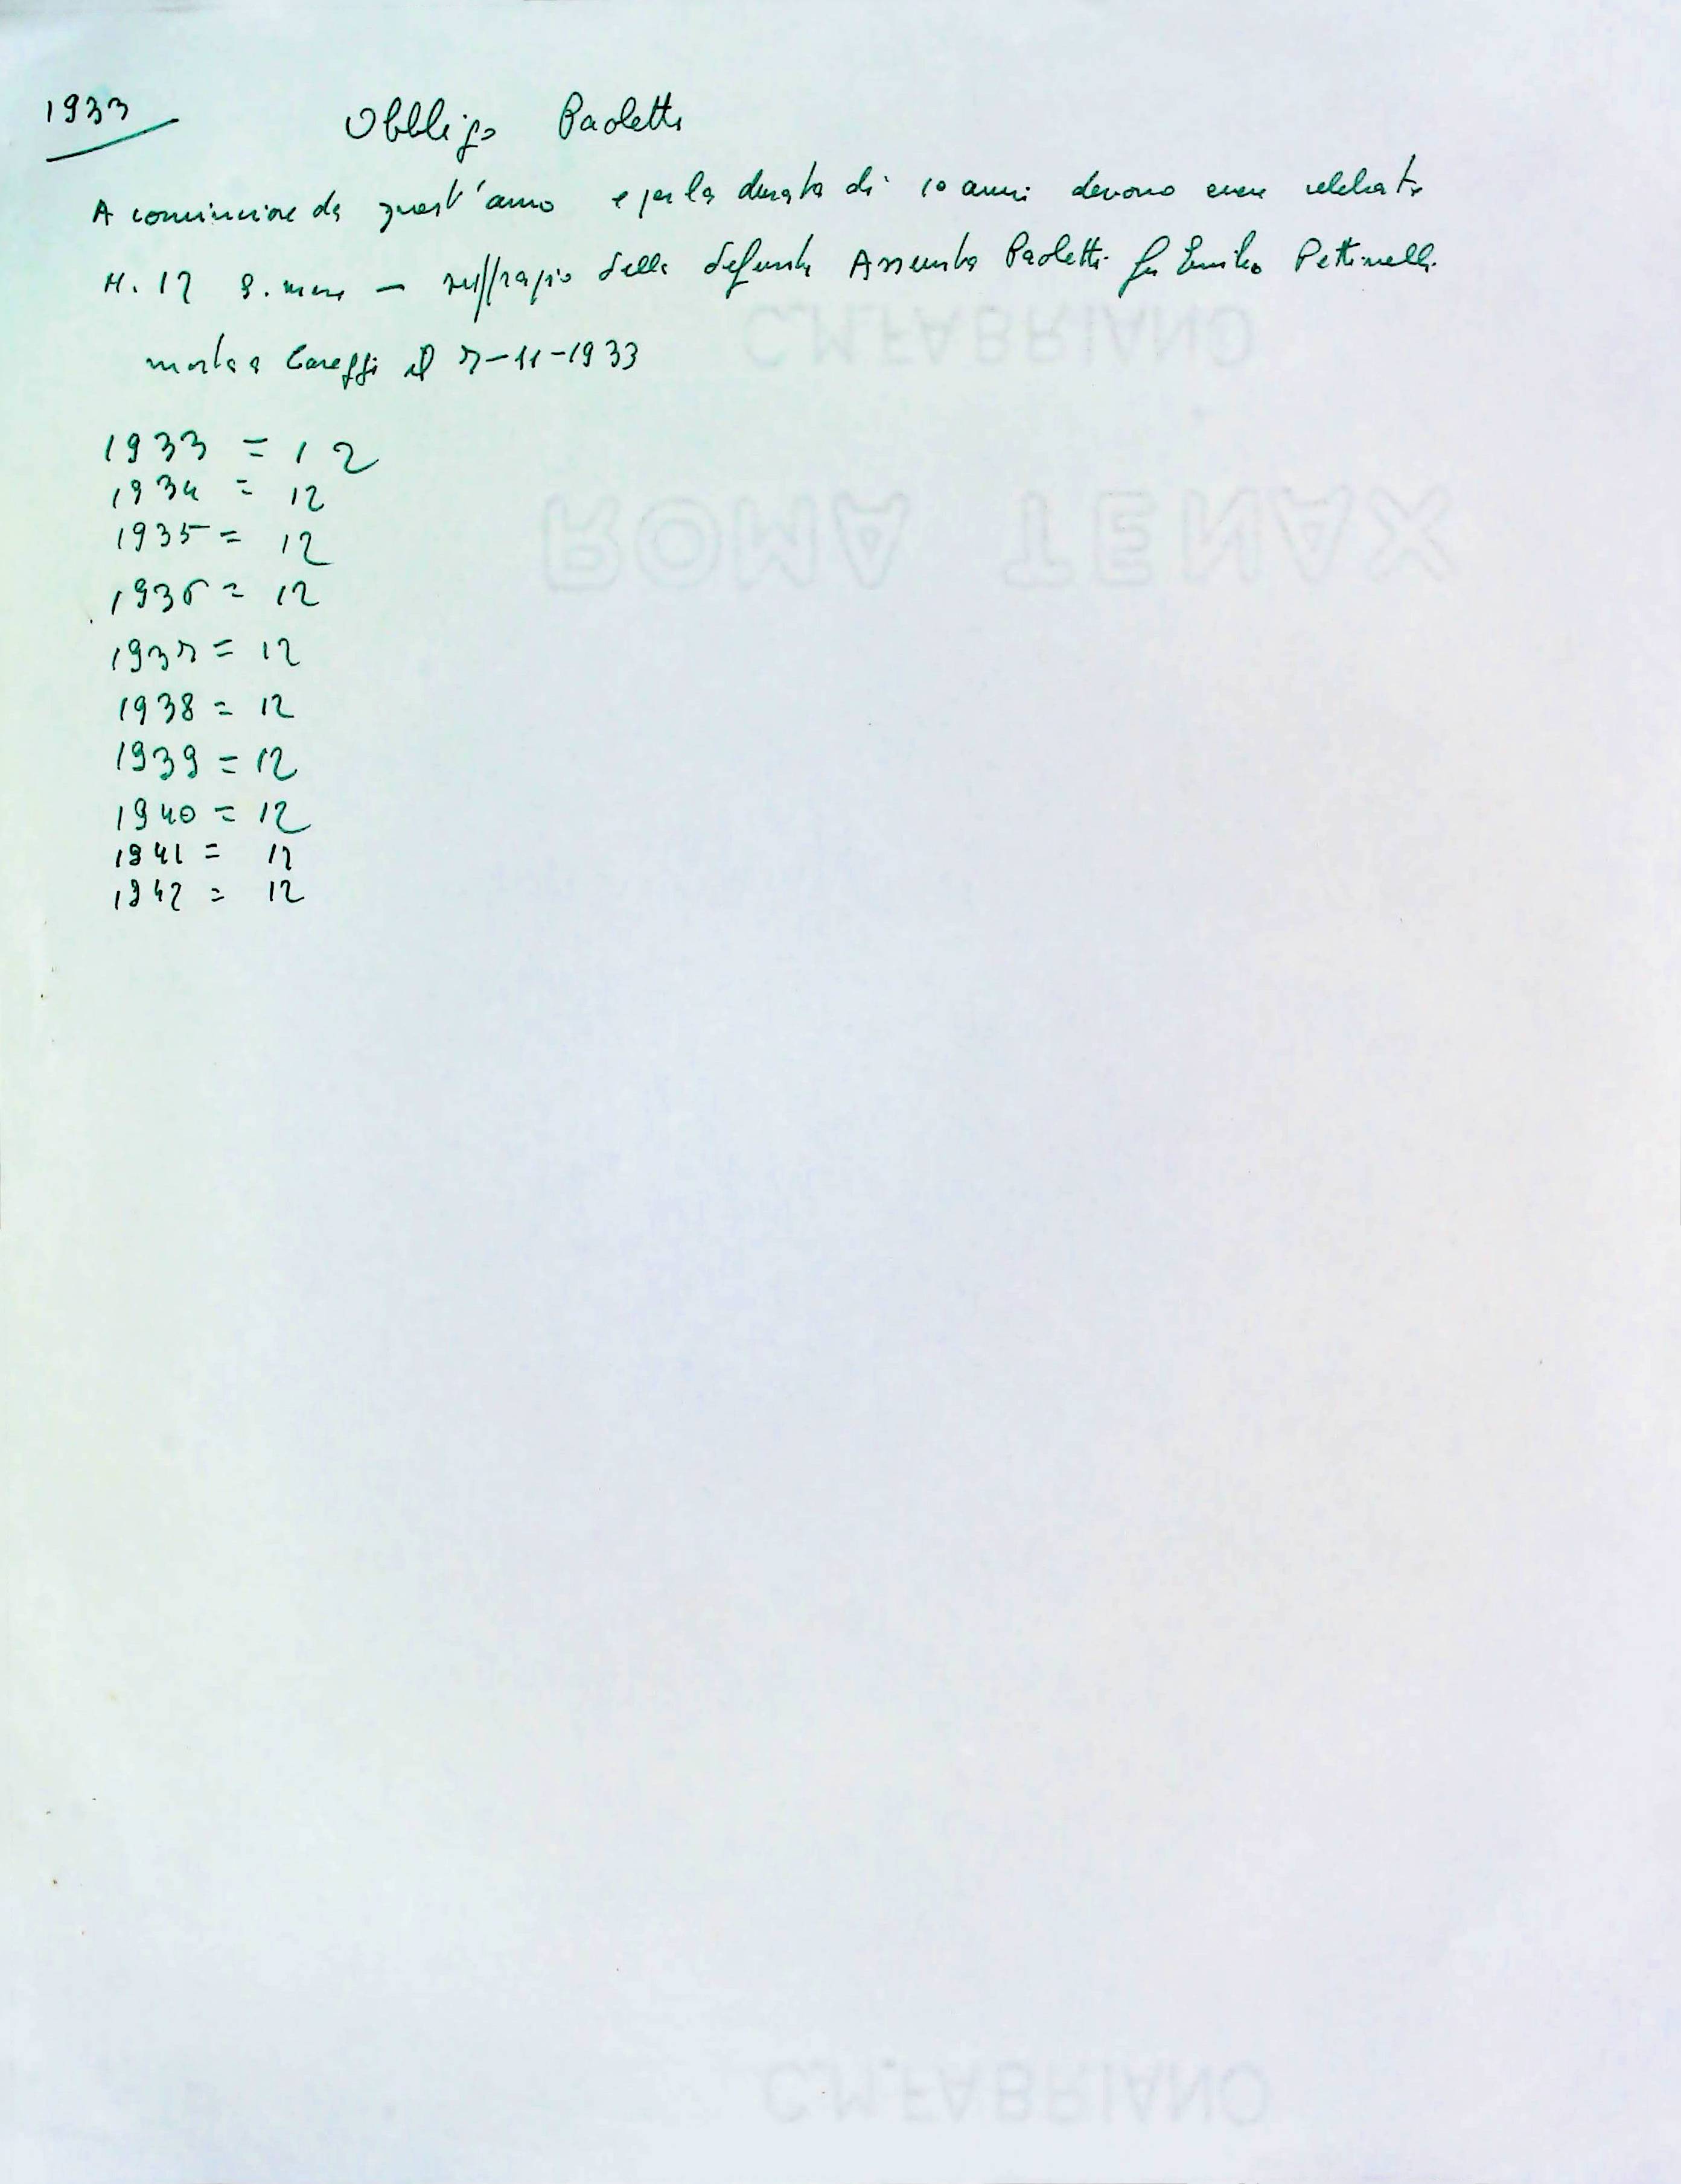 1933 Obbligo Paoletti
A cominciare da quest'anno e per la durata di 10 anni devono essere celebrate
N. 12 S. messe in suffragio della defunta Assunta Paoletti fu Emilio Pettinelli
morta a Careggi il 7-11-1933
1933 = 12
1934 = 12
1935 = 12
1936 = 12
1937 = 12
1938 = 12
1939 = 12
1940 = 12
1941 = 12
1942 = 12
C.M.FABRIANO
ROMA TENAX
C.M.FABRIANO